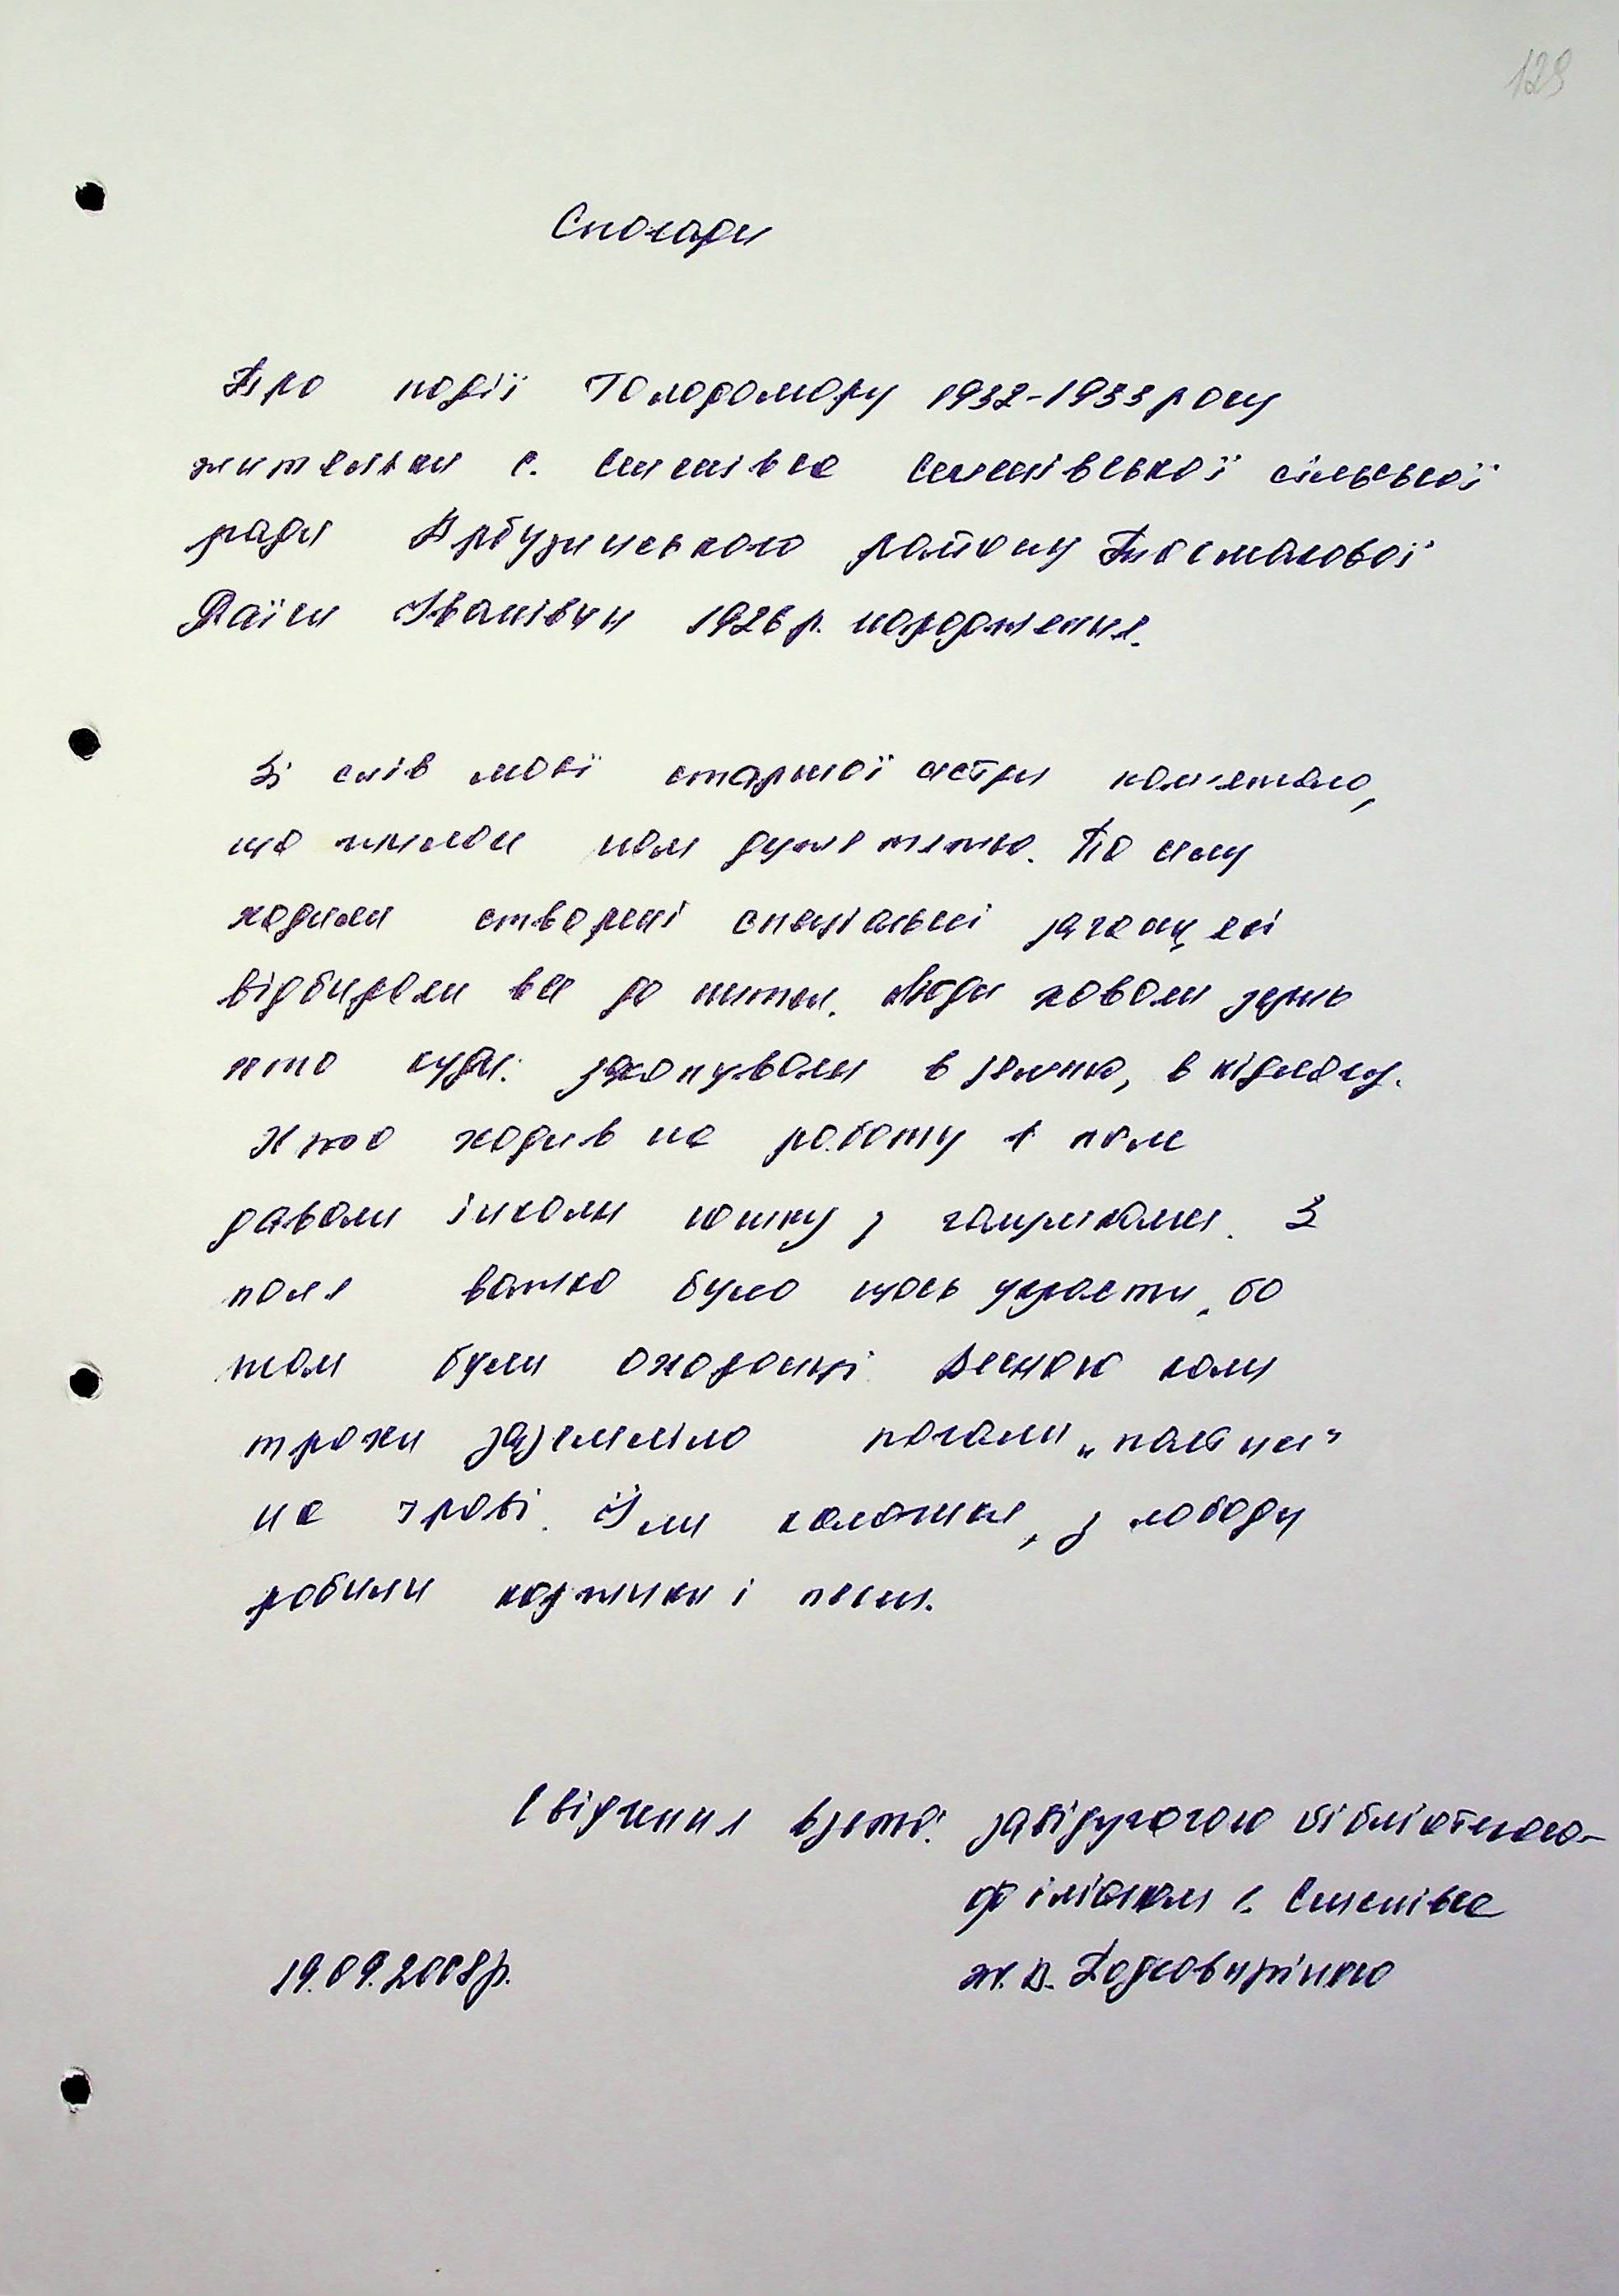 129
Спогади
Про події Голодомору 1932-1933 року
жительки с. Семенівка Семенівської сільської
ради Арбузинського району
Раїси Іванівни 1926 р. народження.
Зі слів моєї старшої сестри пам'ятаю,
що жилося нам дуже тяжко. По селу
ходили створені спеціальні загони, які
відбирали все до нитки. Люди ховали зерно
хто куди: закопували в землю, в підлогу.
Хто ходив на роботу в поле
давали інколи юшку з галушками. З
поля важко було щось украсти, бо
там були охоронці. Весною коли
трохи зазеленіло почали „пастись"
на траві. Їли калачики, з лободи
робили коржики і пекли.
Свідчення взяті: завідуючою бібліотекою-
філіалом с. Семенівка
19.09.2008р.